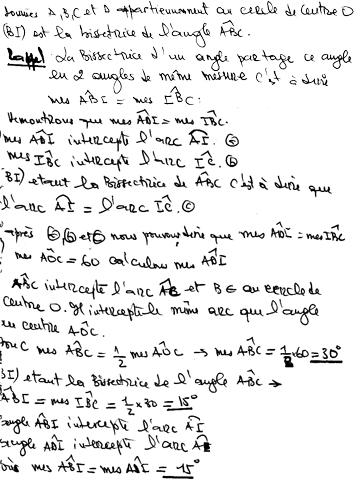 Données A, B, C et D appartiennent au cercle de centre O
(BI) est la bissectrice de l'angle AB̂C.
Rappel: La Bissectrice d'un angle partage ce angle
en 2 angles de même mesure c'est à dire
mes AB̂I = mes IB̂C.
Demontrons que mes AD̂I = mes IB̂C.
mes AD̂I intercepte l'arc AI. ⓐ
mes IB̂C intercepte l'arc IC. ⓑ
BI) etant la Bissectrice de AB̂C c'est à dire que
l'arc AI = l'arc IC. ⓒ
après ⓐ, ⓑ et ⓒ nous pouvons dire que mes AD̂I = mes IBC
mes AÔC = 60 calculons mes AD̂I
AB̂C intercepte l'arc AC et B ∈ au cercle de
centre O. Il intercepte le même arc que l'angle
au centre AÔC.
Donc mes AB̂C = 1/2 mes AÔC → mes AB̂C = 1/2 x 60 = 30°
BI) etant la Bissectrice de l'angle AB̂C →
AB̂I = mes IB̂C = 1/2 x 30 = 15°
angle AB̂I intercepte l'arc AI
angle AD̂I intercepte l'arc
mes AB̂I = mes AD̂I = 15°